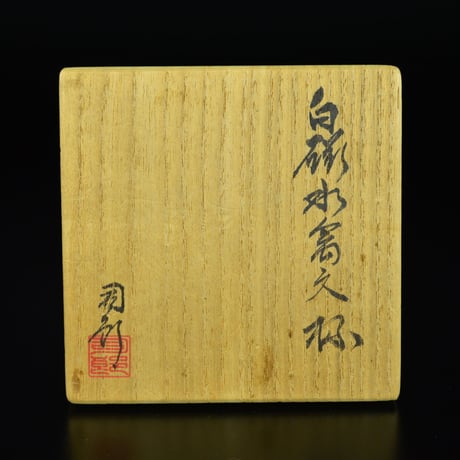 白磁水禽文杯
司郎